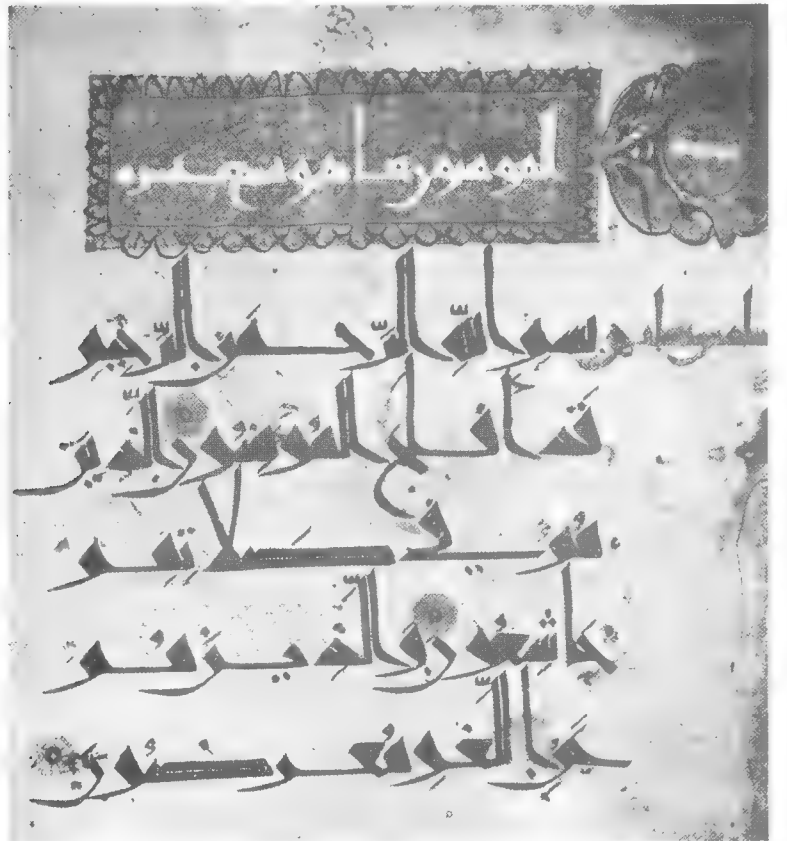 المومنون
بِسْمِ اللّٰهِ الرَّحْمٰنِ الرَّحِيمِ
قَدْ أَفْلَحَ الْمُؤْمِنُونَ الَّذِينَ
هُمْ فِي صَلَاتِهِمْ
خَاشِعُونَ وَالَّذِينَ هُمْ
عَنِ اللَّغْوِ مُعْرِضُونَ